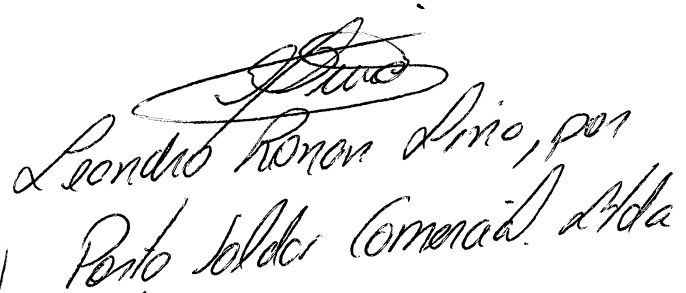 Leandro Ronan Lino, por
Ponto Solda Comercial Ltda